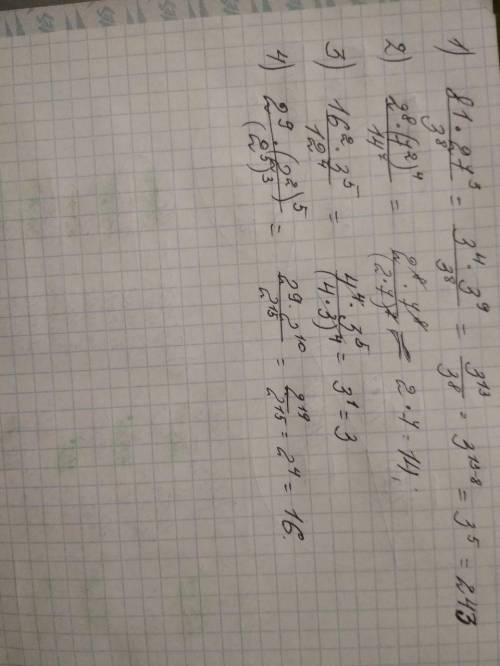 1) (81 · 27³)/3⁸ = (3⁴ · 3⁹)/3⁸ = 3¹³/3⁸ = 3¹³⁻⁸ = 3⁵ = 243
2) (2⁸ · (7²)⁴)/14⁷ = (2⁸ · 7⁸)/(2·7)⁷ = 2 · 7 = 14;
3) (16² · 3⁵)/12⁴ = (4⁴ · 3⁵)/(4·3)⁴ = 3¹ = 3
4) (2⁹ · (2²)⁵)/(2⁵)³ = (2⁹ · 2¹⁰)/2¹⁵ = 2¹⁹/2¹⁵ = 2⁴ = 16.